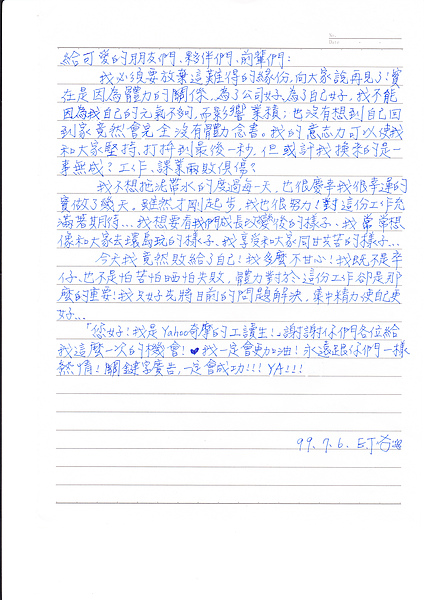 給可愛的朋友們、夥伴們、前輩們:
我必須要放棄這難得的緣份,向大家說再見了!實
在是因為體力的關係,為了公司好、為了自己好,我不能
因為我自己的元氣不夠,而影響業績;也沒有想到自己回
到家竟然會完全沒有體力念書。我的意志力可以使我
和大家堅持、打拼到最後一秒,但或許我換來的是一
事無成?工作、課業兩敗俱傷?
我不想拖泥帶水的度過每一天,也很慶幸我很幸運的
實做了幾天,雖然才剛起步,我也很努力!對這份工作充
滿著期待...我想要有我們成長改變後的樣子、我常常想
像和大家去環島玩的樣子、我享受和大家同甘共苦的樣子...
今天我竟然敗給了自己!我多麼不甘心!我既不是辛
仔、也不是怕苦怕晒怕失敗,體力對於這份工作卻是那
麼的重要!我只好先將目前的問題解決,集中精力使配更
好...
「您好!我是Yahoo奇摩的工讀生!」謝謝你們各位給
我這麼一次的機會!♥我一定會更加油!永遠跟你們一樣
熱情!關鍵字廣告,一定會成功!!!YA!!!
99.7.6.